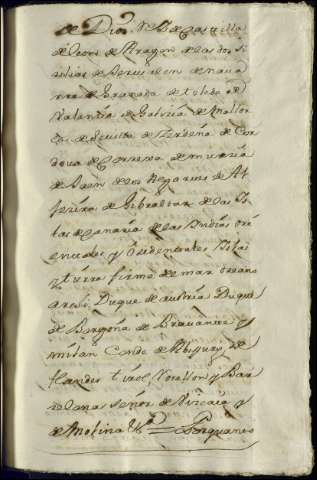 de Dios Rey de Castilla
de Leon de Aragon de las dos si
cilias de Jerusalen de nava
rra de Granada de toledo de
Valentia de Galicia de Mallor
ca de Sevilla de Serdeña de Cor
dova de Corcega de murcia
de Jaen de los Algarves de Al
secira de Gibraltar de las Is
las de canaria de las Indias ori
entales y Ocidentales Islas
y tierra firme de mar oceano
archi Duque de austria Duque
de Borgoña de Bravante y
milan Conde de Abspurg de
flandes tirol
señor de Vizcaia y
de Molina &ª = Porquanto